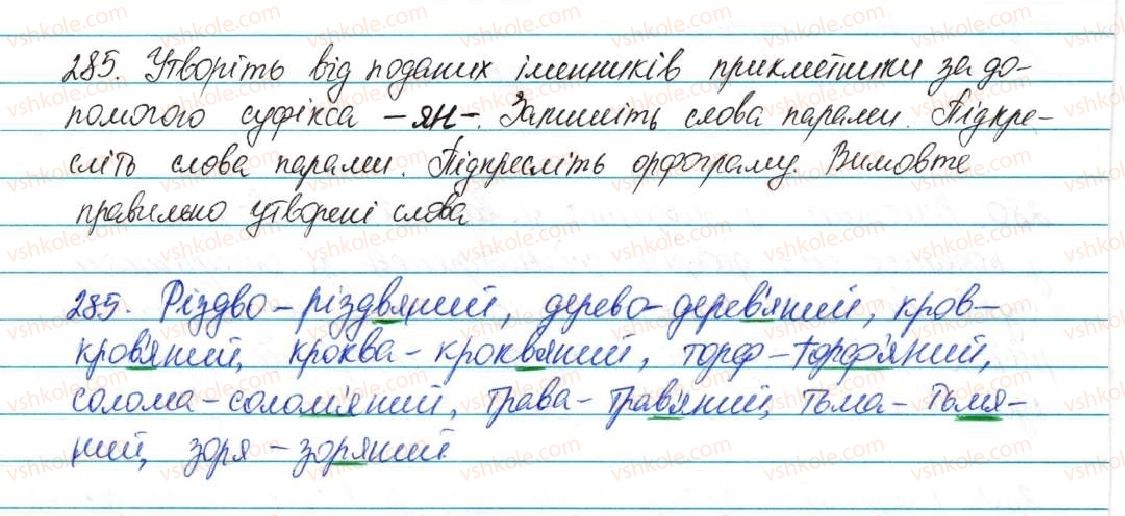 285. Утворіть від поданих іменників прикметники за до-
помогою суфікса -ян-. Запишіть слова парами. Підкре-
сліть слова парами. Підкресліть орфограму. Вимовте
правильно утворені слова
285. Різдво - різдвяний, дерево - дерев'яний, кров -
кров'яний, кроква - кроквяний, торф - торф'яний,
солома - солом'яний, трава - трав'яний, тьма - тьмя-
ний, зоря - зоряний